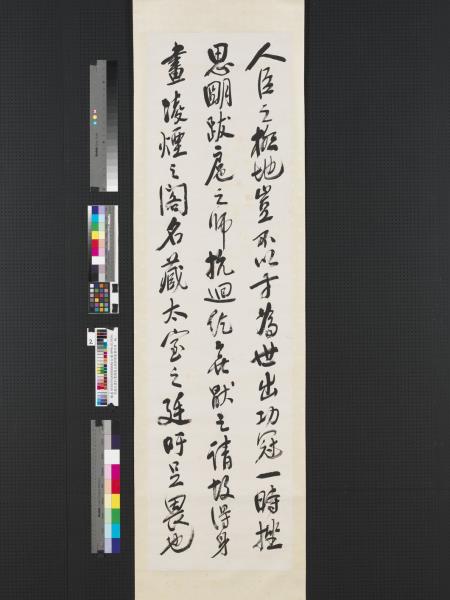 人臣之極地豈不以才為世出功冠一時挫
思明跋扈之師抗迴紇無猒之請故得身
畫凌煙之閣名藏太室之廷吁足畏也
2